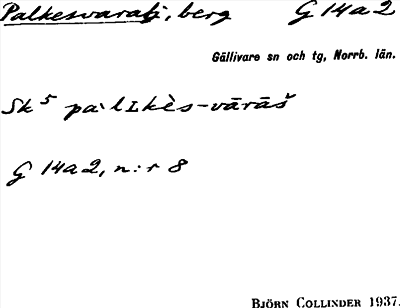 Palkesvaratj, berg G 14a2
Gällivare sn och tg, Norrb. län.
Sk⁵ pa`lɪkès-vārāš
G 14a2, n:r 8
BJÖRN COLLINDER 1937.